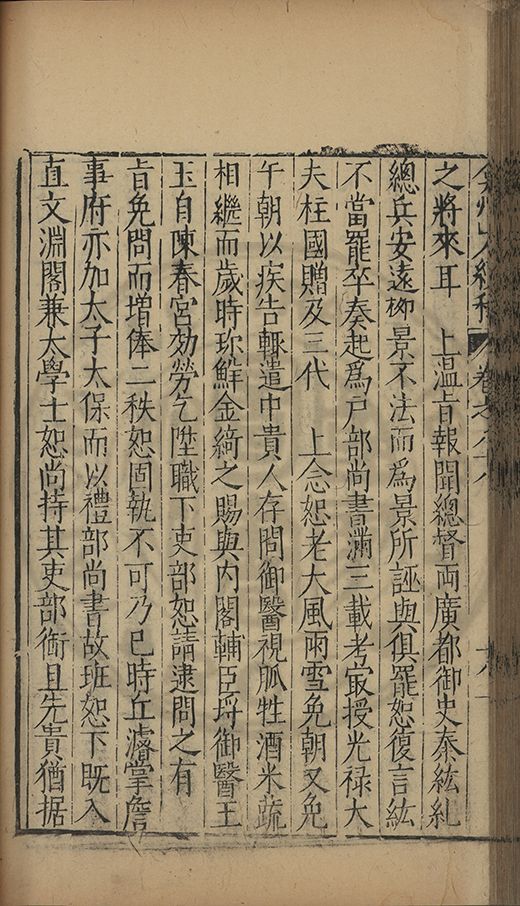 弇州山人續稿 卷之
之將來耳　上溫旨報聞總督両廣都御史秦紘糺
總兵安遠桺景不法而爲景所誣與俱罷恕復言紘
不當罷卒奏起爲戶部尚書滿三載考㝡授光禄大
夫柱國贈及三代　上念恕老大風雨雪免朝又免
午朝以疾告輙遣中貴人存問御醫視脈牲酒米蔬
相繼而歲時珎鮮金綺之賜與内閣輔臣埒御醫王
玉自陳春宮効勞乞陞職下吏部恕請逮問之有
旨免問而增俸二秩恕固執不可乃已時丘濬掌詹
事府亦加太子太保而以禮部尚書故班恕下既入
直文淵閣兼大學士恕尚持其吏部銜且先貴猶据